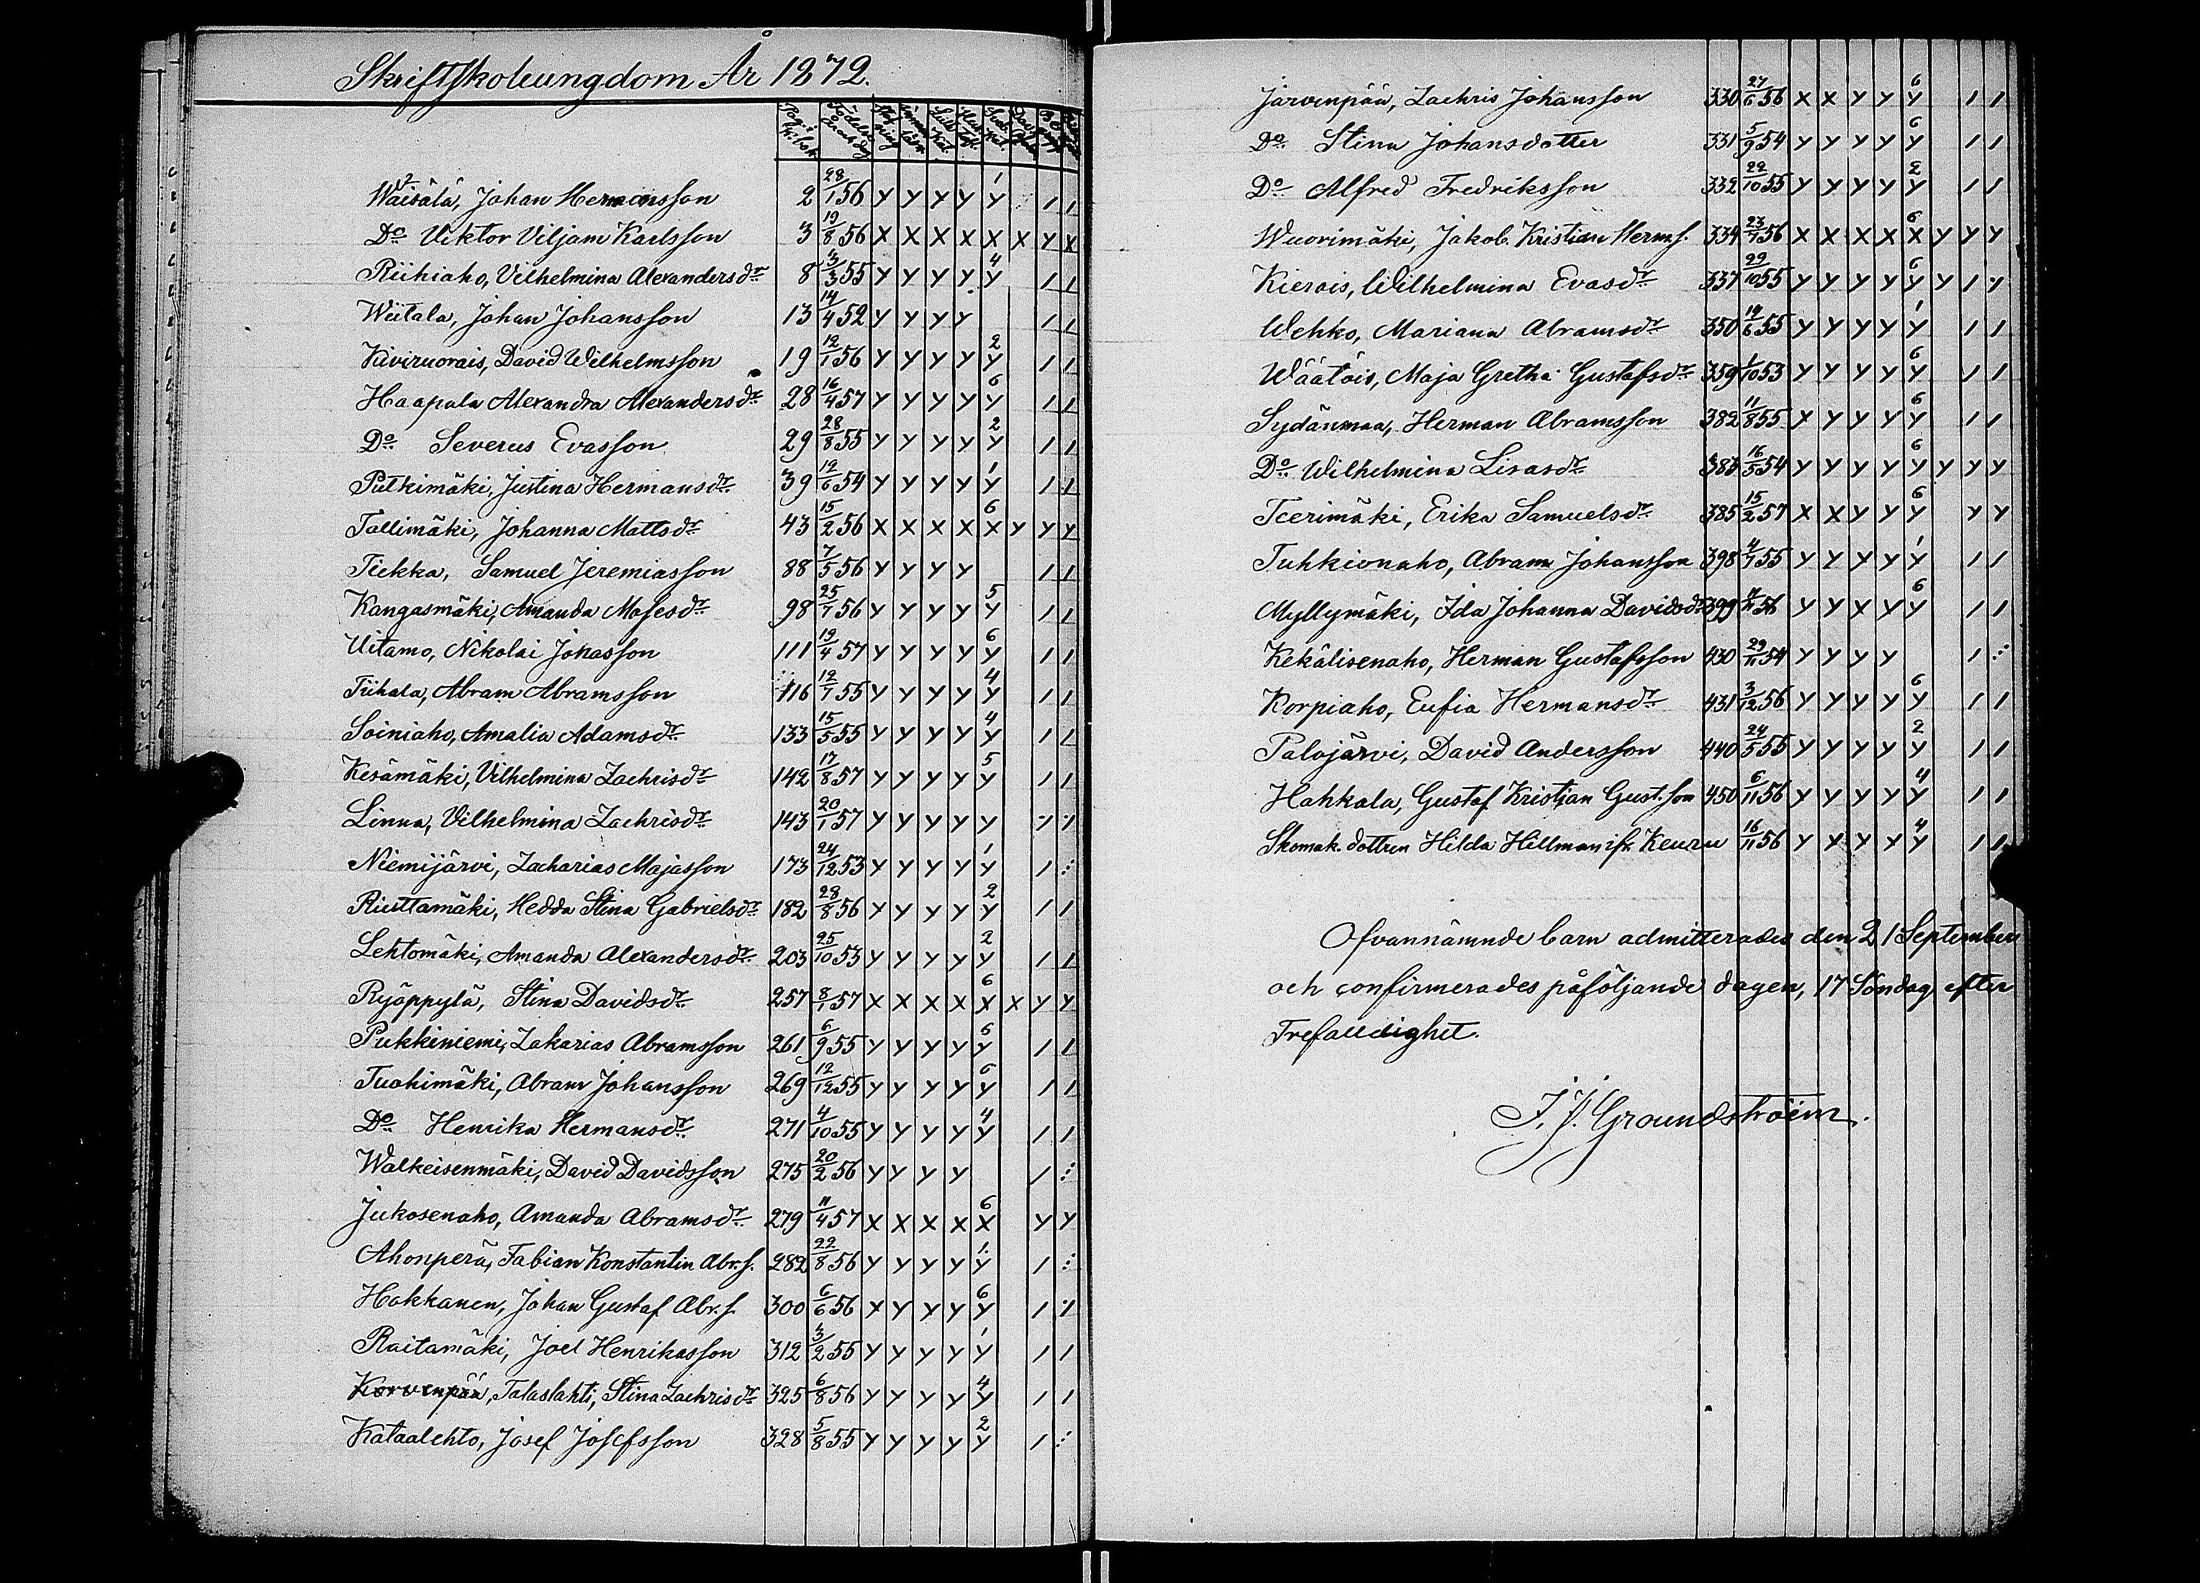 Skriftskoleungdom År 1872.
Wäisälä, Johan Hermansson 2 28/1 56 Y Y Y Y 1/Y / /
Do Viktor Viljam Karlsson 3 19/8 56 X X X X X X Y X
Riihiaho, Vilhelmina Alexandersdr 8 3/3 55 Y Y Y Y 4/Y / /
Wiitala, Johan Johansson 13 14/4 52 Y Y Y Y / /
Kiviruorais, David Wilhelmsson 19 12/1 56 Y Y Y Y 2/Y / /
Haapala Alexandra Alexandersdr 28 16/4 57 Y Y Y Y 6/Y / /
Do Severus Evasson 29 28/8 55 Y Y Y Y 2/Y / /
Pulkimäki, Justina Hermansdr 39 12/6 54 Y Y Y Y 1/Y / /
Tallimäki, Johanna Mattsdr 43 15/2 56 X X X X 6/X Y Y Y
Tiekka, Samuel Jeremiasson 88 7/5 56 Y Y Y Y / /
Kangasmäki, Amanda Mosesdr 98 25/7 56 Y Y Y Y 5/Y / /
Uitamo, Nikolai Jonasson 111 19/4 57 Y Y Y Y 6/Y / /
Tiihala, Abram Abramsson 116 12/7 55 Y Y Y Y 4/Y / /
Soiniaho, Amalia Adamsdr 133 15/5 55 Y Y Y Y 4/Y / /
Kesämäki, Vilhelmina Zachrisdr 142 17/8 57 Y Y Y Y 5/Y / /
Linna, Vilhelmina Zachrisdr 143 20/1 57 Y Y Y Y Y
Niemijärvi, Zacharias Majasson 173 24/12 53 Y Y Y Y 1/Y /
Riusttamäki, Hedda Stina Gabrielsdr 182 28/8 56 Y Y Y Y 2/Y / /
Lehtomäki, Amanda Alexandersdr 203 25/10 53 Y Y Y Y 2/Y / /
Ryöppylä, Stina Davidsdr 257 8/1 57 X X X X 6/X X Y Y
Pukkiniemi, Zakarias Abramsson 261 6/9 55 Y Y Y Y 6/Y / /
Tuohimäki, Abram Johansson 269 12/12 55 Y Y Y Y 6/Y / /
Do Henrika Hermansdr 271 4/10 55 Y Y Y Y 4/Y / /
Walkeisenmäki, David Davidsson 275 20/2 56 Y Y Y Y /
Jukosenaho, Amanda Abramsdr 279 11/4 57 X X X X 6/X Y Y
Ahonperä, Fabian Konstantin Abr.s. 282 22/8 56 Y Y Y Y 1/Y /
Hokkanen, Johan Gustaf Abr.s. 300 6/6 56 X Y Y Y 6/Y /
Raitamäki, Joel Henrikasson 312 3/2 55 Y Y Y Y 1/Y / /
Korvenpää, Talaslahti, Stina Zachrisdr 325 6/8 56 Y Y Y Y 4/Y / /
Kataalehto, Josef Josefsson 328 5/8 55 Y Y Y Y 2/Y /
Järvenpää, Zachris Johansson 330 27/6 56 X X Y Y 6/Y / /
Do Stina Johansdotter 331 5/9 54 Y Y Y Y 6/Y / /
Do Alfred Fredriksson 332 22/10 55 Y Y Y Y 2/Y / /
Wuorimäki, Jakob Kristian Herm.s. 334 23/7 56 X X X X 6/X Y Y Y
Kierois, Wilhelmina Evasdr 337 29/10 55 Y Y Y Y 6/Y Y / Y
Wehko, Mariana Abramsdr 350 19/6 55 Y Y Y Y 1/Y / /
Wäätöis, Maja Gretha Gustafsdr 359 1/10 53 Y Y Y Y 6/Y / /
Sydänmaa, Herman Abramsson 382 11/8 55 X Y Y Y 6/Y / /
Do Wilhelmina Lisasdr 383 16/5 54 Y Y Y Y 6/Y Y Y Y
Teerimäki, Erika Samuelsdr 385 15/2 57 X X Y Y 6/Y Y Y
Tuhkionaho, Abram Johansson 398 4/7 55 Y Y Y Y 1/Y / /
Myllymäki, Ida Johanna Davidsdr 399 56 Y Y X Y 6/Y / /
Kekälisenaho, Herman Gustafsson 430 29/11 54 Y Y Y Y /
Korpiaho, Eufia Hermansdr 431 3/12 56 Y Y Y Y 6/Y / /
Palojärvi, David Andersson 440 24/5 55 Y Y Y Y 2/Y / /
Hahkala, Gustaf Kristian Gust.son 450 6/11 56 Y Y Y Y 4/Y / /
Skomak. dottren Hilda Hillman ifr. Keuru 16/11 56 Y Y Y Y 4/Y / /
Ofvannämnde barn admitterades den 21 September
och confirmerades påföljande dagen, 17 Söndag efter
Trefalldighet.
J. J. Groundstroëm.